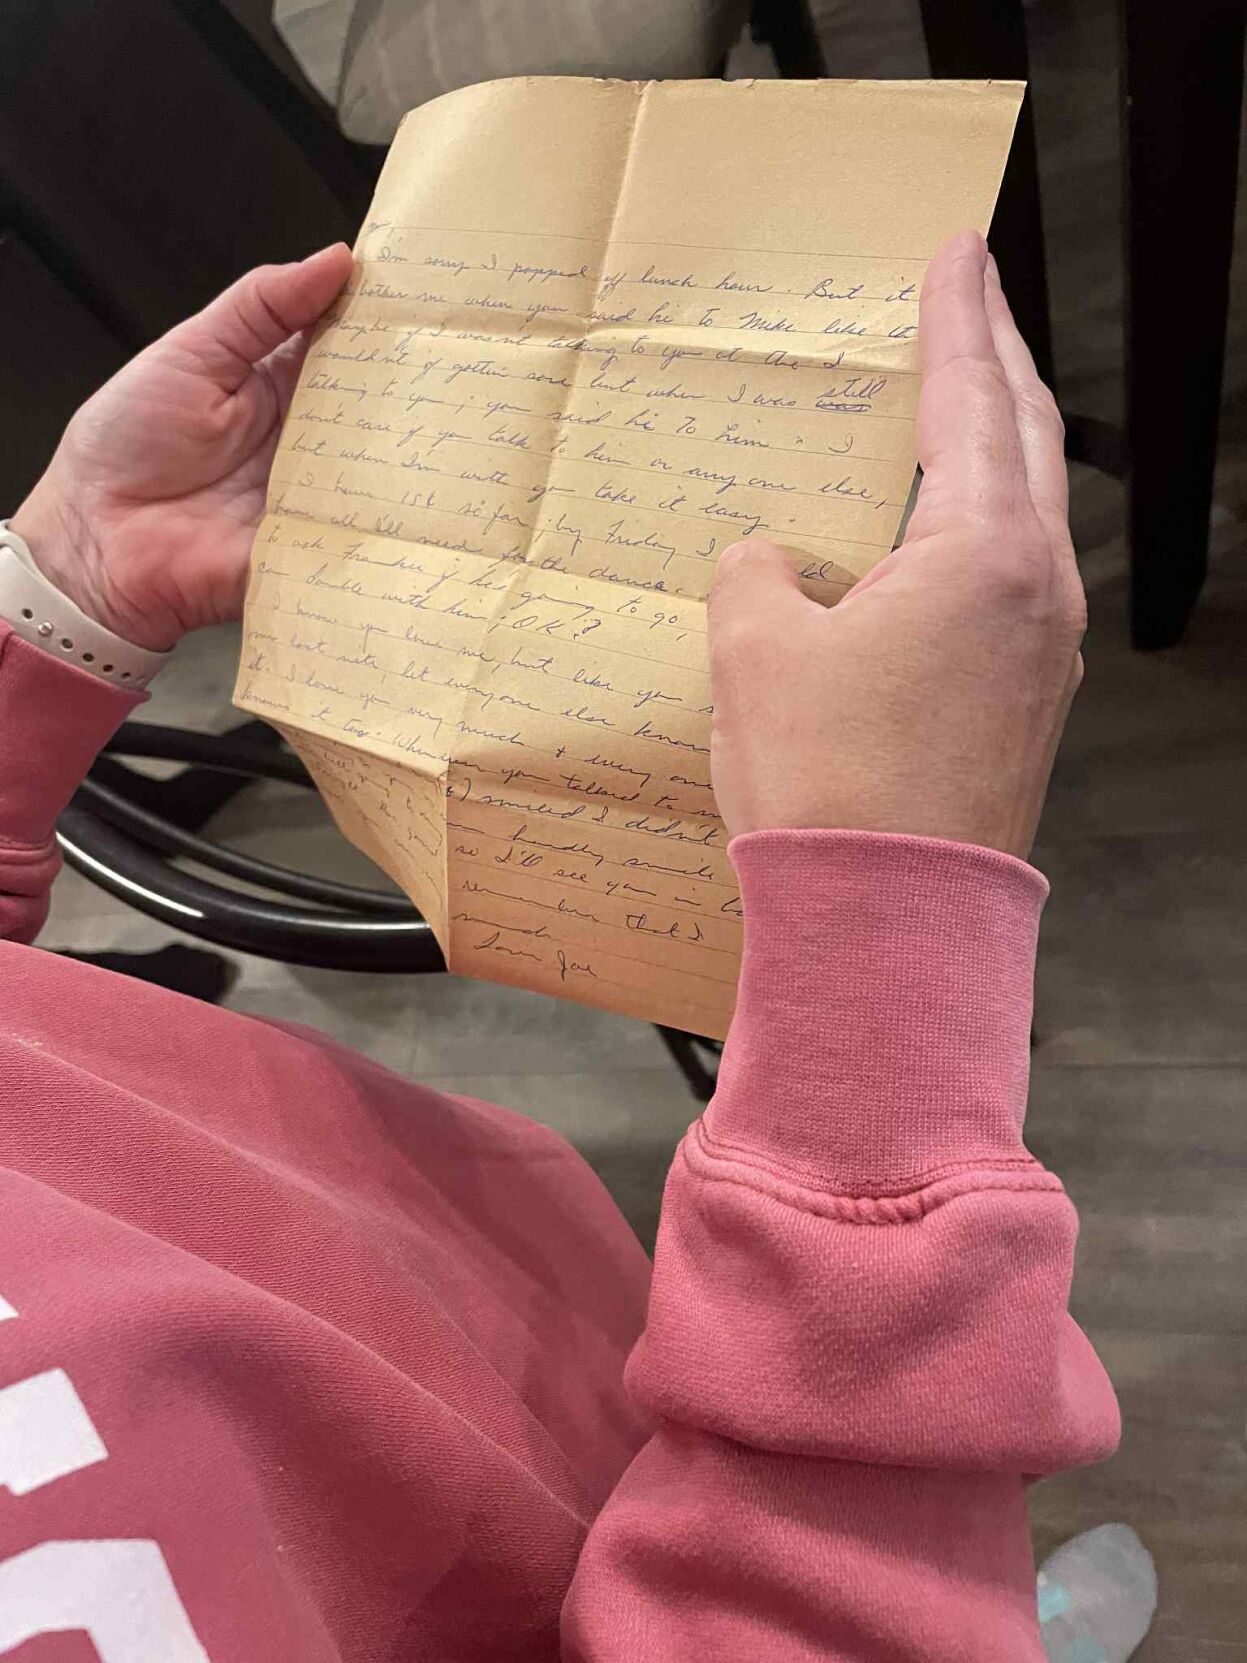 I'm sorry I popped off lunch hour. But it
bother me when you said hi to Mike like it
Maybe if I wasn't talking to you at the I
wouldn't if gotten sore but when I was still
talking to you, you said hi to him. I
don't care if you talk to him or any one else,
but when I'm with you take it easy.
I have 15¢ so far, by Friday I
have all I'll need for the dance.
to ask Frankie if he's going to go,
can double with him, O.K.?
I know you love me, but like you
me last note, let everyone else know
it. I love you very much & every one
knows it too. When you talked to
I smiled I didn't
hardly smile
so I'll see you in
remember that I
much
Lovin Joe